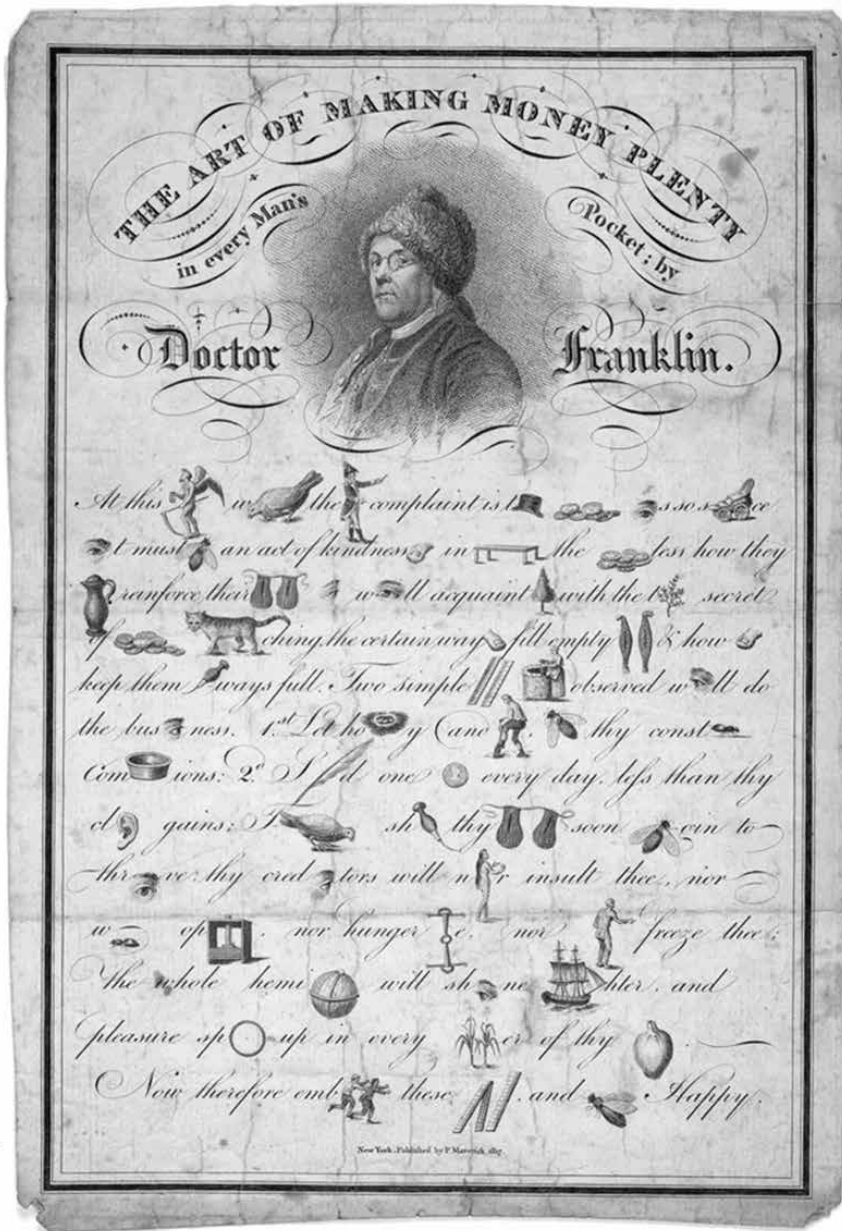 THE ART OF MAKING MONEY PLENTY
in every Man's Pocket; by
Doctor Franklin.
At this w the complaint is t s so s ce
t must an act of kindness in the less how they
reinforce their w ll acquaint with the t secret
of ching, the certain way fill empty & how
keep them ways full. Two simple observed w ll do
the bus ness. 1.st Let ho y (ano thy const
com ions: 2.d S d one every day, less than thy
cl gains; T sh thy soon in to
thr ve, thy cred tors will n r insult thee, nor
w op , nor hunger e, nor freeze thee;
The whole hemi will sh ne hter, and
pleasure sp up in every er of thy .
Now therefore emb these , and Happy.
New York. Published by P. Maverick, 1817